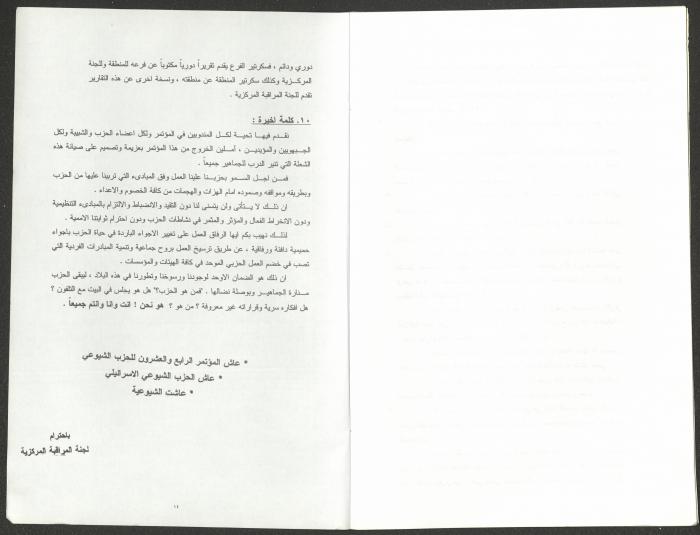 دوري ودائم ، فسكرتير الفرع يقدم تقريراً دورياً مكتوباً عن فرعه للمنطقة وللجنة
المركزية وكذلك سكرتير المنطقة عن منطقته ، ونسخة اخرى عن هذه التقارير
تقدم للجنة المراقبة المركزية .
١٠. كلمة اخيرة :
نقدم فيها تحية لكل المندوبين في المؤتمر ولكل اعضاء الحزب والشبيبة ولكل
الجبهويين والمؤيدين ، آملين الخروج من هذا المؤتمر بعزيمة وتصميم على صيانة هذه
الشعلة التي تنير الدرب للجماهير جميعاً .
فمن اجل السمو بحزبنا علينا العمل وفق المبادىء التي تربينا عليها من الحزب
وبطريقه ومواقفه وصموده امام الهزات والهجمات من كافة الخصوم والاعداء .
ان ذلك لا يتأتى ولن يتسنى لنا دون التقيد والانضباط والالتزام بالمبادىء التنظيمية
ودون الانخراط الفعال والمؤثر والمثمر في نشاطات الحزب ودون احترام ثوابتنا الاممية .
لذلك نهيب بكم ايها الرفاق العمل على تغيير الاجواء الباردة في حياة الحزب باجواء
حميمية دافئة ورفاقية ، عن طريق ترسيخ العمل بروح جماعية وتنمية المبادرات الفردية التي
تصب في خضم العمل الحزبي الموحد في كافة الهيئات والمؤسسات .
ان ذلك هو الضمان الاوحد لوجودنا ورسوخنا وتطورنا في هذه البلاد ، ليبقى الحزب
منارة الجماهير وبوصلة نضالها . "فمن هو الحزب؟ هل هو يجلس في البيت مع التلفون ؟
هل افكاره سرية وقراراته غير معروفة ؟ من هو ؟ هو نحن ! انت وانا وانتم جميعاً .
* عاش المؤتمر الرابع والعشرون للحزب الشيوعي
* عاش الحزب الشيوعي الاسرائيلي
* عاشت الشيوعية
باحترام
لجنة المراقبة المركزية
١٤